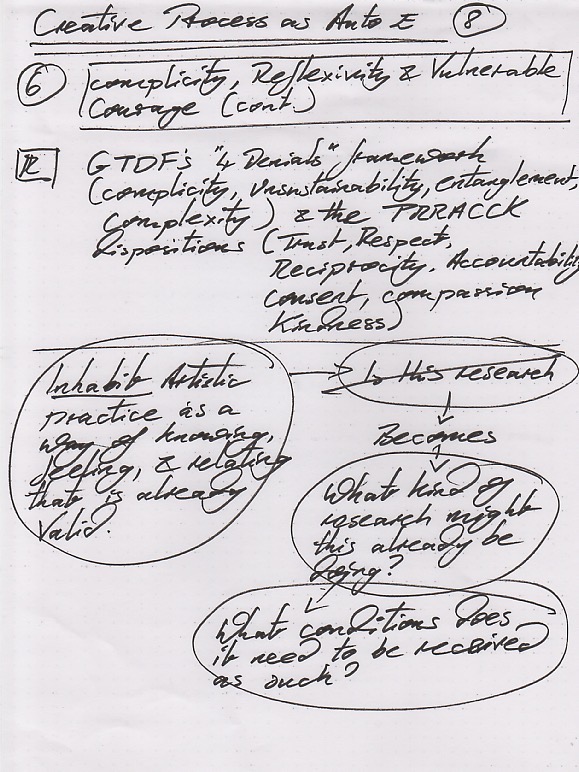 Creative Process as Auto E ⑧
⑥ complicity, Reflexivity & Vulnerable
Courage (cont.)
R GTDF's "4 Denials" framework
(complicity, unsustainability, entanglement,
complexity) & the TRRACCK
Dispositions (Trust, Respect,
Reciprocity, Accountability
consent, compassion
Kindness)
Inhabit Artistic
practice as a
way of knowing,
feeling, & relating
that is already
valid.
Is this research
Becomes
What kind of
research might
this already be
doing?
What conditions does
it need to be received
as such?